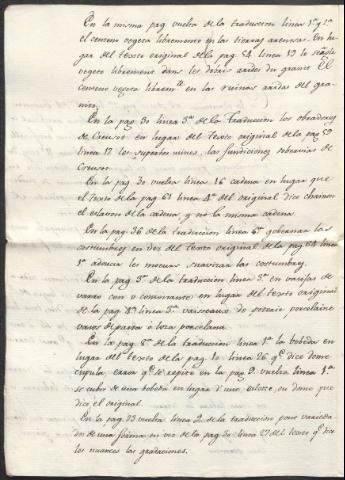 En la misma pag vuelta de la traduccion linea 1ª y 2ª
el censeno vegeta libremente en las tierras arenosas. En lu-
gar del texto original de la pag 54 linea 13 le
vegete librement dans les debris arides du granit El
vegeta libremte en las ruinas aridas del gra-
nito.
En la pag 30 linea 3ª de la traduccion los obradores
de Creuso en lugar del Texto original de la pag 59
linea 17 les superbes usines, las fundiciones sobervias de
Creuso.
En la pag 30 vuelta linea 16 cadena en lugar que
el texto de la pag 61 linea 4ª del original dice chainon
el eslavon de la cadena, y no la misma cadena
En la pag 36 de la traduccion linea 6ª gobernar las
costumbres en vez del Texto original de la pag 64 linea
1ª adoucir les moeurs, suavizar las costumbres.
En la pag 3ª de la traduccion linea 3ª en vasijas de
varro en lugar del texto original
de la pag 8ª linea 5ª vaisseaux de poterie porcelaine
vasos de varro ò loza porcelana.
En la pag 8ª de la traduccion linea 1ª la boveda en
lugar del texto de la pag 10 linea 26 qe dice dome
cupula, error qe se repite en la pag 9 vuelta linea 1ª
se cubre de una boveda en lugar d'une, su dome que
dice el original.
En la pag 13 vuelta linea 2 de la traduccion para
de una forma en vez de la pag 20 linea 27 del texto qe dice
les nuances las gradaciones.